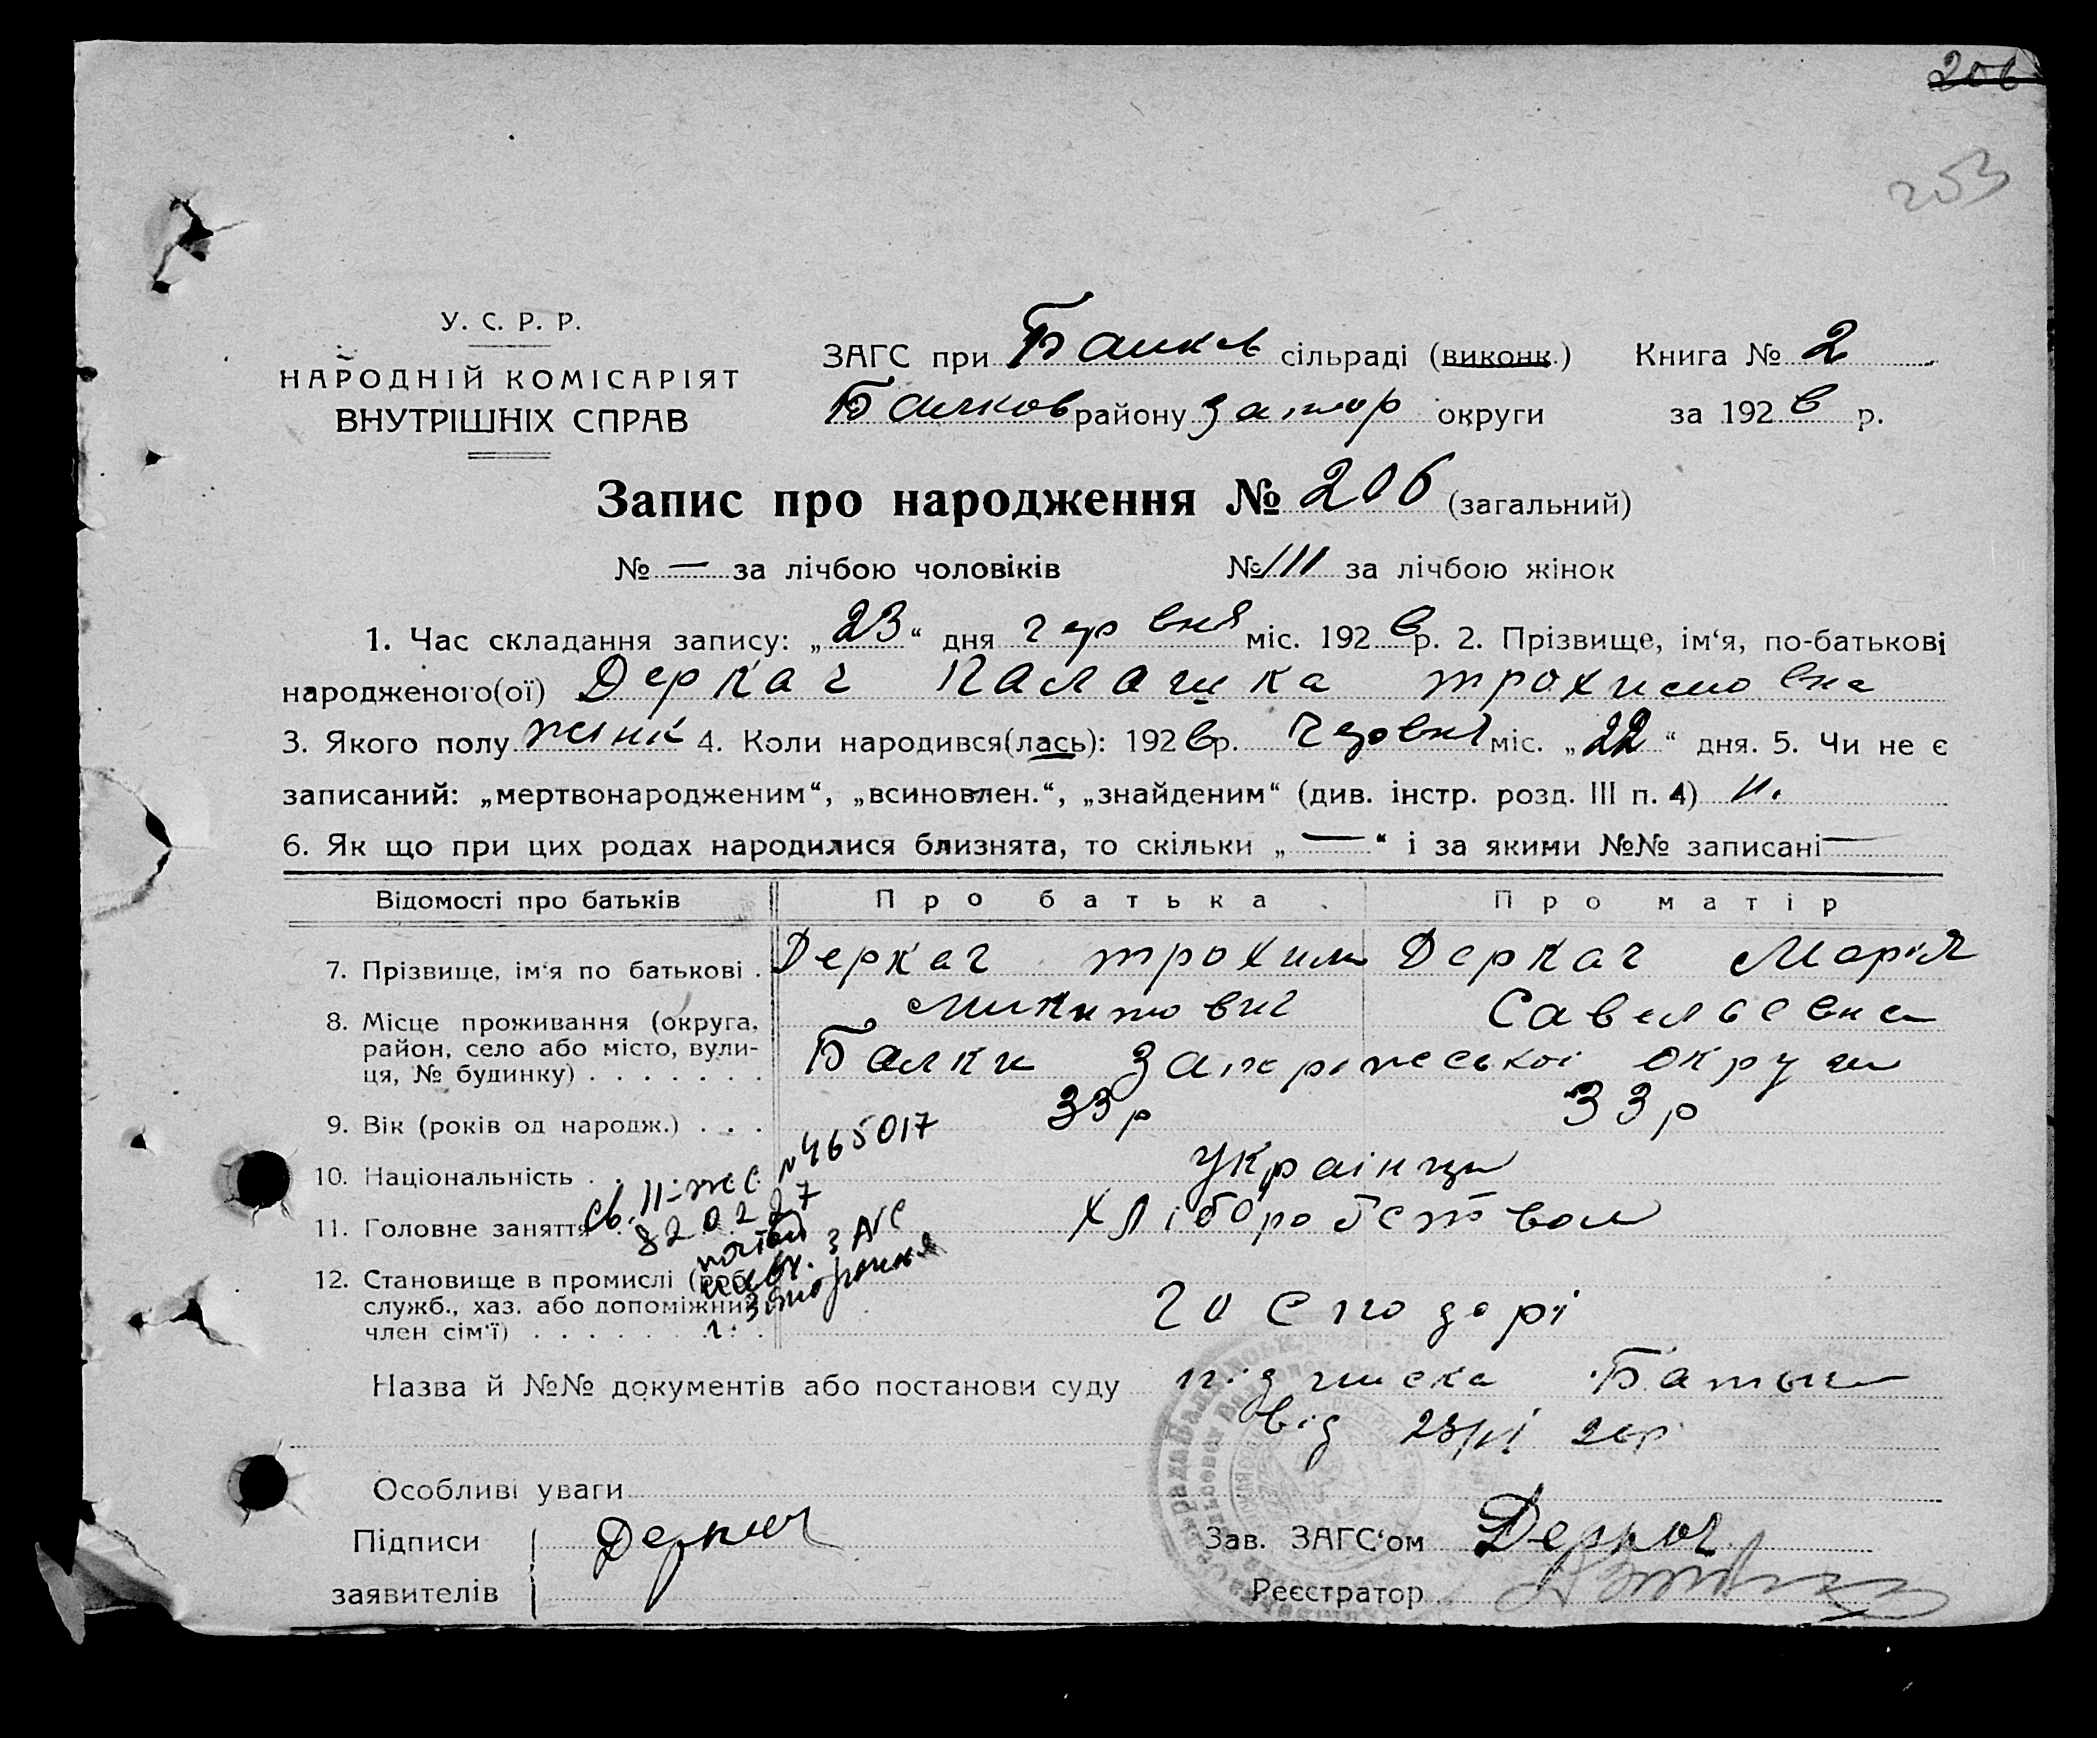 206
253
У. С. Р. Р.
НАРОДНІЙ КОМІСАРІЯТ
ВНУТРІШНІХ СПРАВ
ЗАГС при Балків сільраді (виконк.) Книга № 2
Балков району Запор округи за 1926 р.
Запис про народження № 206 (загальний)
№ — за лічбою чоловіків № 111 за лічбою жінок
1. Час складання запису: „23“ дня червня міс. 1926 р. 2. Прізвище, ім‘я, по-батькові
народженого(ої) Деркач Палашка Трохимовна
3. Якого полу жінк 4. Коли народився(лась): 1926 р. Червня міс. „22“ дня. 5. Чи не є
записаний: „мертвонародженим“, „всиновлен.“, „знайденим“ (див. інстр. розд. III п. 4) н.
6. Як що при цих родах народилися близнята, то скільки „—“ і за якими №№ записані —
Відомості про батьків Про батька Про матір
7. Прізвище, ім‘я по батькові . Деркач Трохим Деркач Марія
Микитович Савельевна
8. Місце проживання (округа,
район, село або місто, вули-
ця, № будинку) . . . . . . . Балки Запоріжської округи
9. Вік (років од народж.) . . . 33р 33р
10. Національність . Українці
11. Головне заняття Хліборобством
св. II-жс №465017
820227
ЗАГС
12. Становище в промислі (роб.,
служб., хаз. або допоміжний
член сім‘ї) . . . . . . . . Господарі
Назва й №№ документів або постанови суду підписка Батьки
від 23/VI 26р
Особливі уваги
Підписи Деркач Зав. ЗАГС‘ом Деркач
заявителів Реєстратор